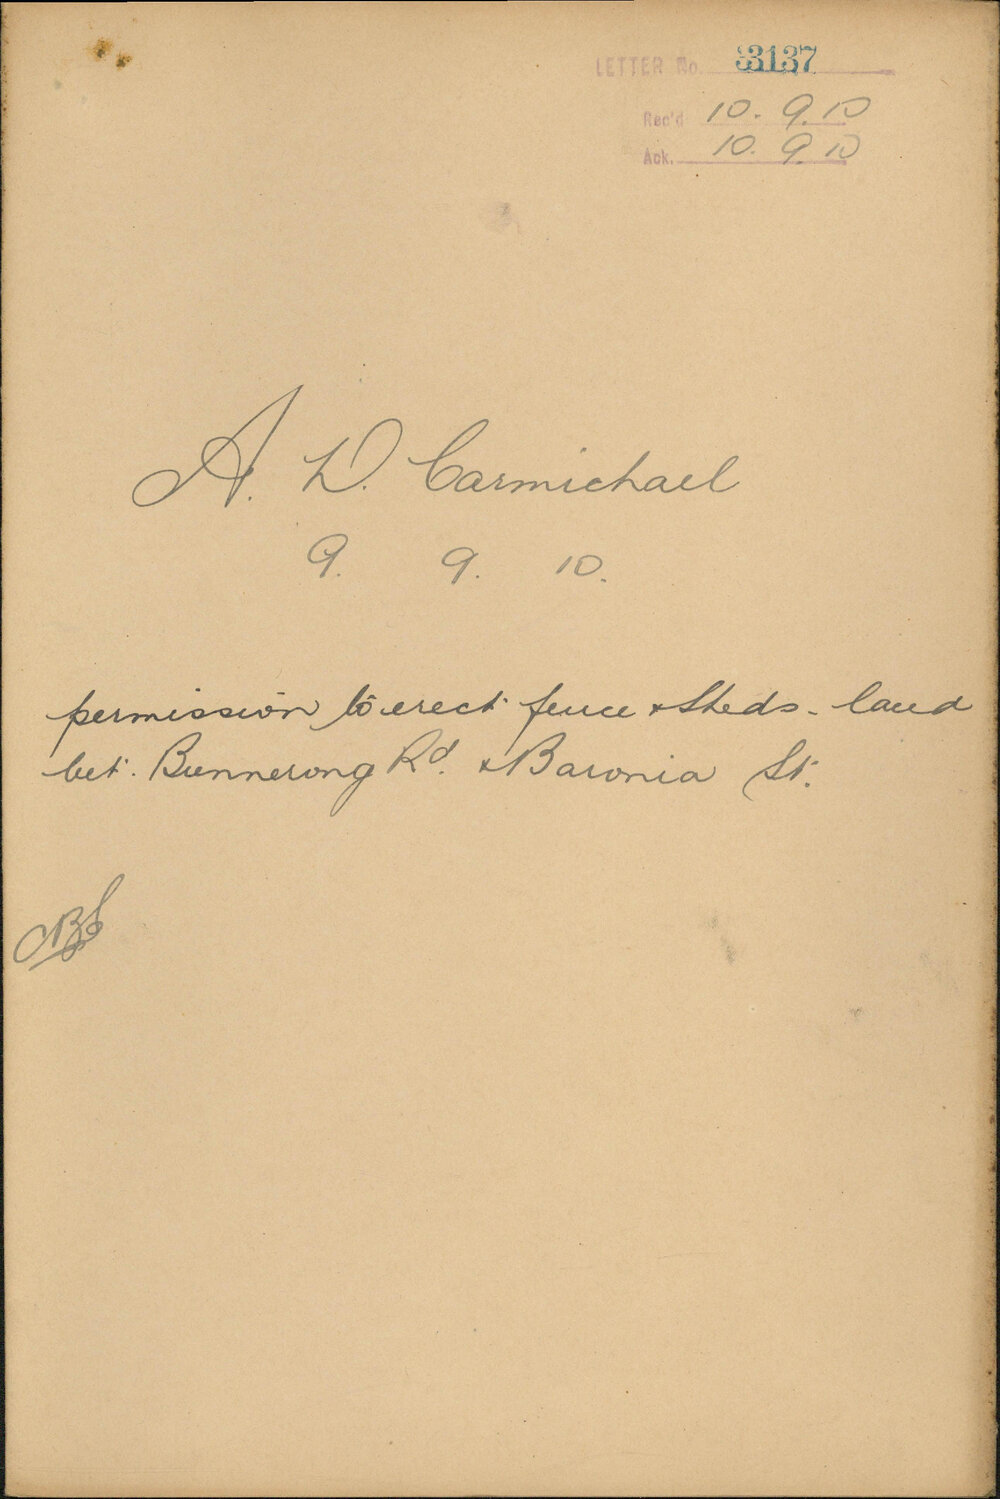 LETTER No. 3137
Rec'd 10. 9. 10
Ack. 10. 9 10
A. D. Carmichael
9. 9. 10.
permission to erect fence & Sheds - land
bet. Bunnerong Rd. & Baronia St.